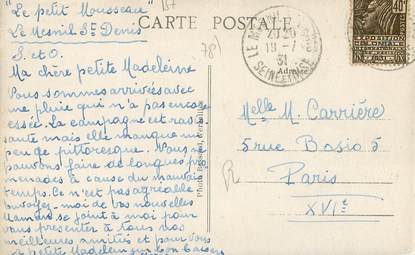 "Le petit Mousseau"
Le Mesnil St Denis
S. et O.
CARTE POSTALE
Ma chère petite Madeleine
Nous sommes arrivées avec
une pluie qui n'a pas encore
cessé. La campagne est ravis
sante mais elle manque un
peu de pittoresque. Nous ne
pouvons faire de longues pro
menades à cause du mauvais
temps. Ce n'est pas agréable
Envoyez-moi de vos nouvelles
Maman se joint à moi pour
vous présenter à tous nos
meilleures amitiés et pour vous
petite Madeleine un bon baiser
78)
LE M
19-7
31
SEINE ET OISE
Adresse
40c
Melle M. Carrière
5 rue Bosio 5
Paris
XVIe
R